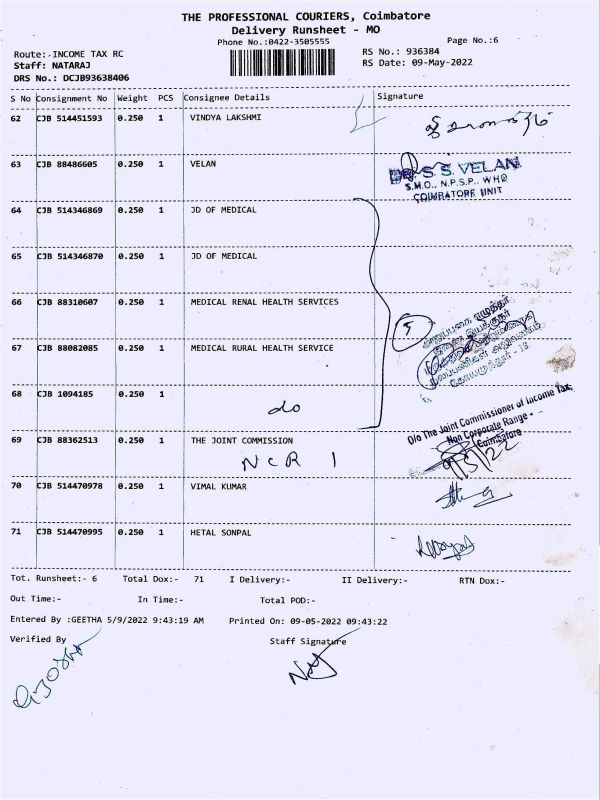 THE PROFESSIONAL COURIERS, Coimbatore
Delivery Runsheet - MO
Phone No.:0422-3505555 Page No.:6
Route:-INCOME TAX RC RS No.: 936384
Staff: NATARAJ RS Date: 09-May-2022
DRS No.: DCJB93638406
S No Consignment No Weight PCS Consignee Details Signature
62 CJB 514451593 0.250 1 VINDYA LAKSHMI
63 CJB 88486605 0.250 1 VELAN
S. S. VELAN
S.M.O., N.P.S.P., WHO
COIMBATORE UNIT
64 CJB 514346869 0.250 1 JD OF MEDICAL
65 CJB 514346870 0.250 1 JD OF MEDICAL
66 CJB 88310607 0.250 1 MEDICAL RENAL HEALTH SERVICES
5
67 CJB 88082085 0.250 1 MEDICAL RURAL HEALTH SERVICE
68 CJB 1094185 0.250 1
do
O/o The Joint Commissioner of Income Tax,
Non Corporate Range -
Coimbatore
9/5/22
69 CJB 88362513 0.250 1 THE JOINT COMMISSION
NCR 1
70 CJB 514470978 0.250 1 VIMAL KUMAR
71 CJB 514470995 0.250 1 HETAL SONPAL
Tot. Runsheet:- 6 Total Dox:- 71 I Delivery:- II Delivery:- RTN Dox:-
Out Time:- In Time:- Total POD:-
Entered By :GEETHA 5/9/2022 9:43:19 AM Printed On: 09-05-2022 09:43:22
Verified By Staff Signature